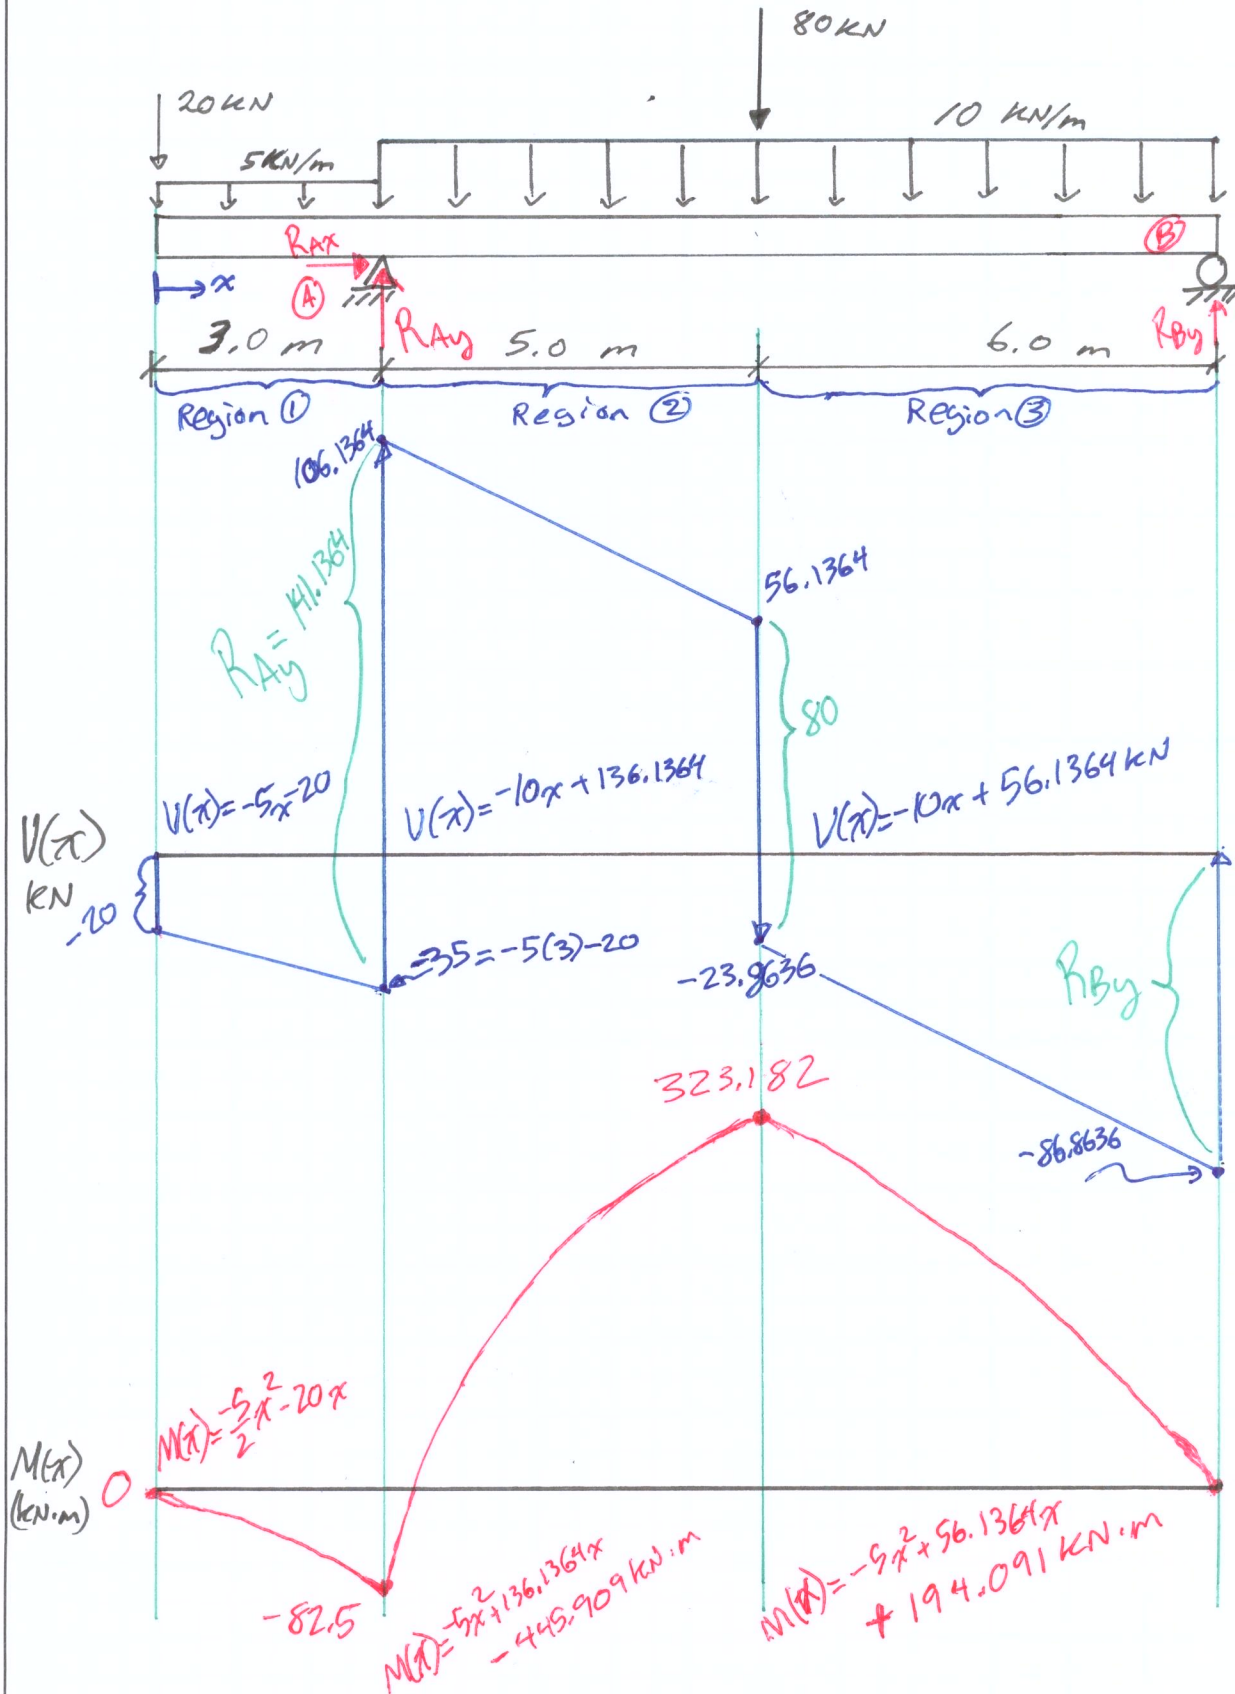 80 KN
20 KN
10 KN/m
5 KN/m
RAx
B
x
A
RAy
RBy
3.0 m
5.0 m
6.0 m
Region ①
Region ②
Region ③
106.1364
56.1364
RAy = 141.1364
80
V(x)=-5x-20
V(x)=-10x+136.1364
V(x)=-10x+56.1364 KN
V(x)
KN
-20
-35=-5(3)-20
-23.8636
RBy
323.182
-86.8636
M(x)=-5/2x²-20x
M(x)
(KN·m)
0
-82.5
M(x)=-5x²+136.1364x
-445.909 KN·m
M(x)=-5x²+56.1364x
+194.091 KN·m